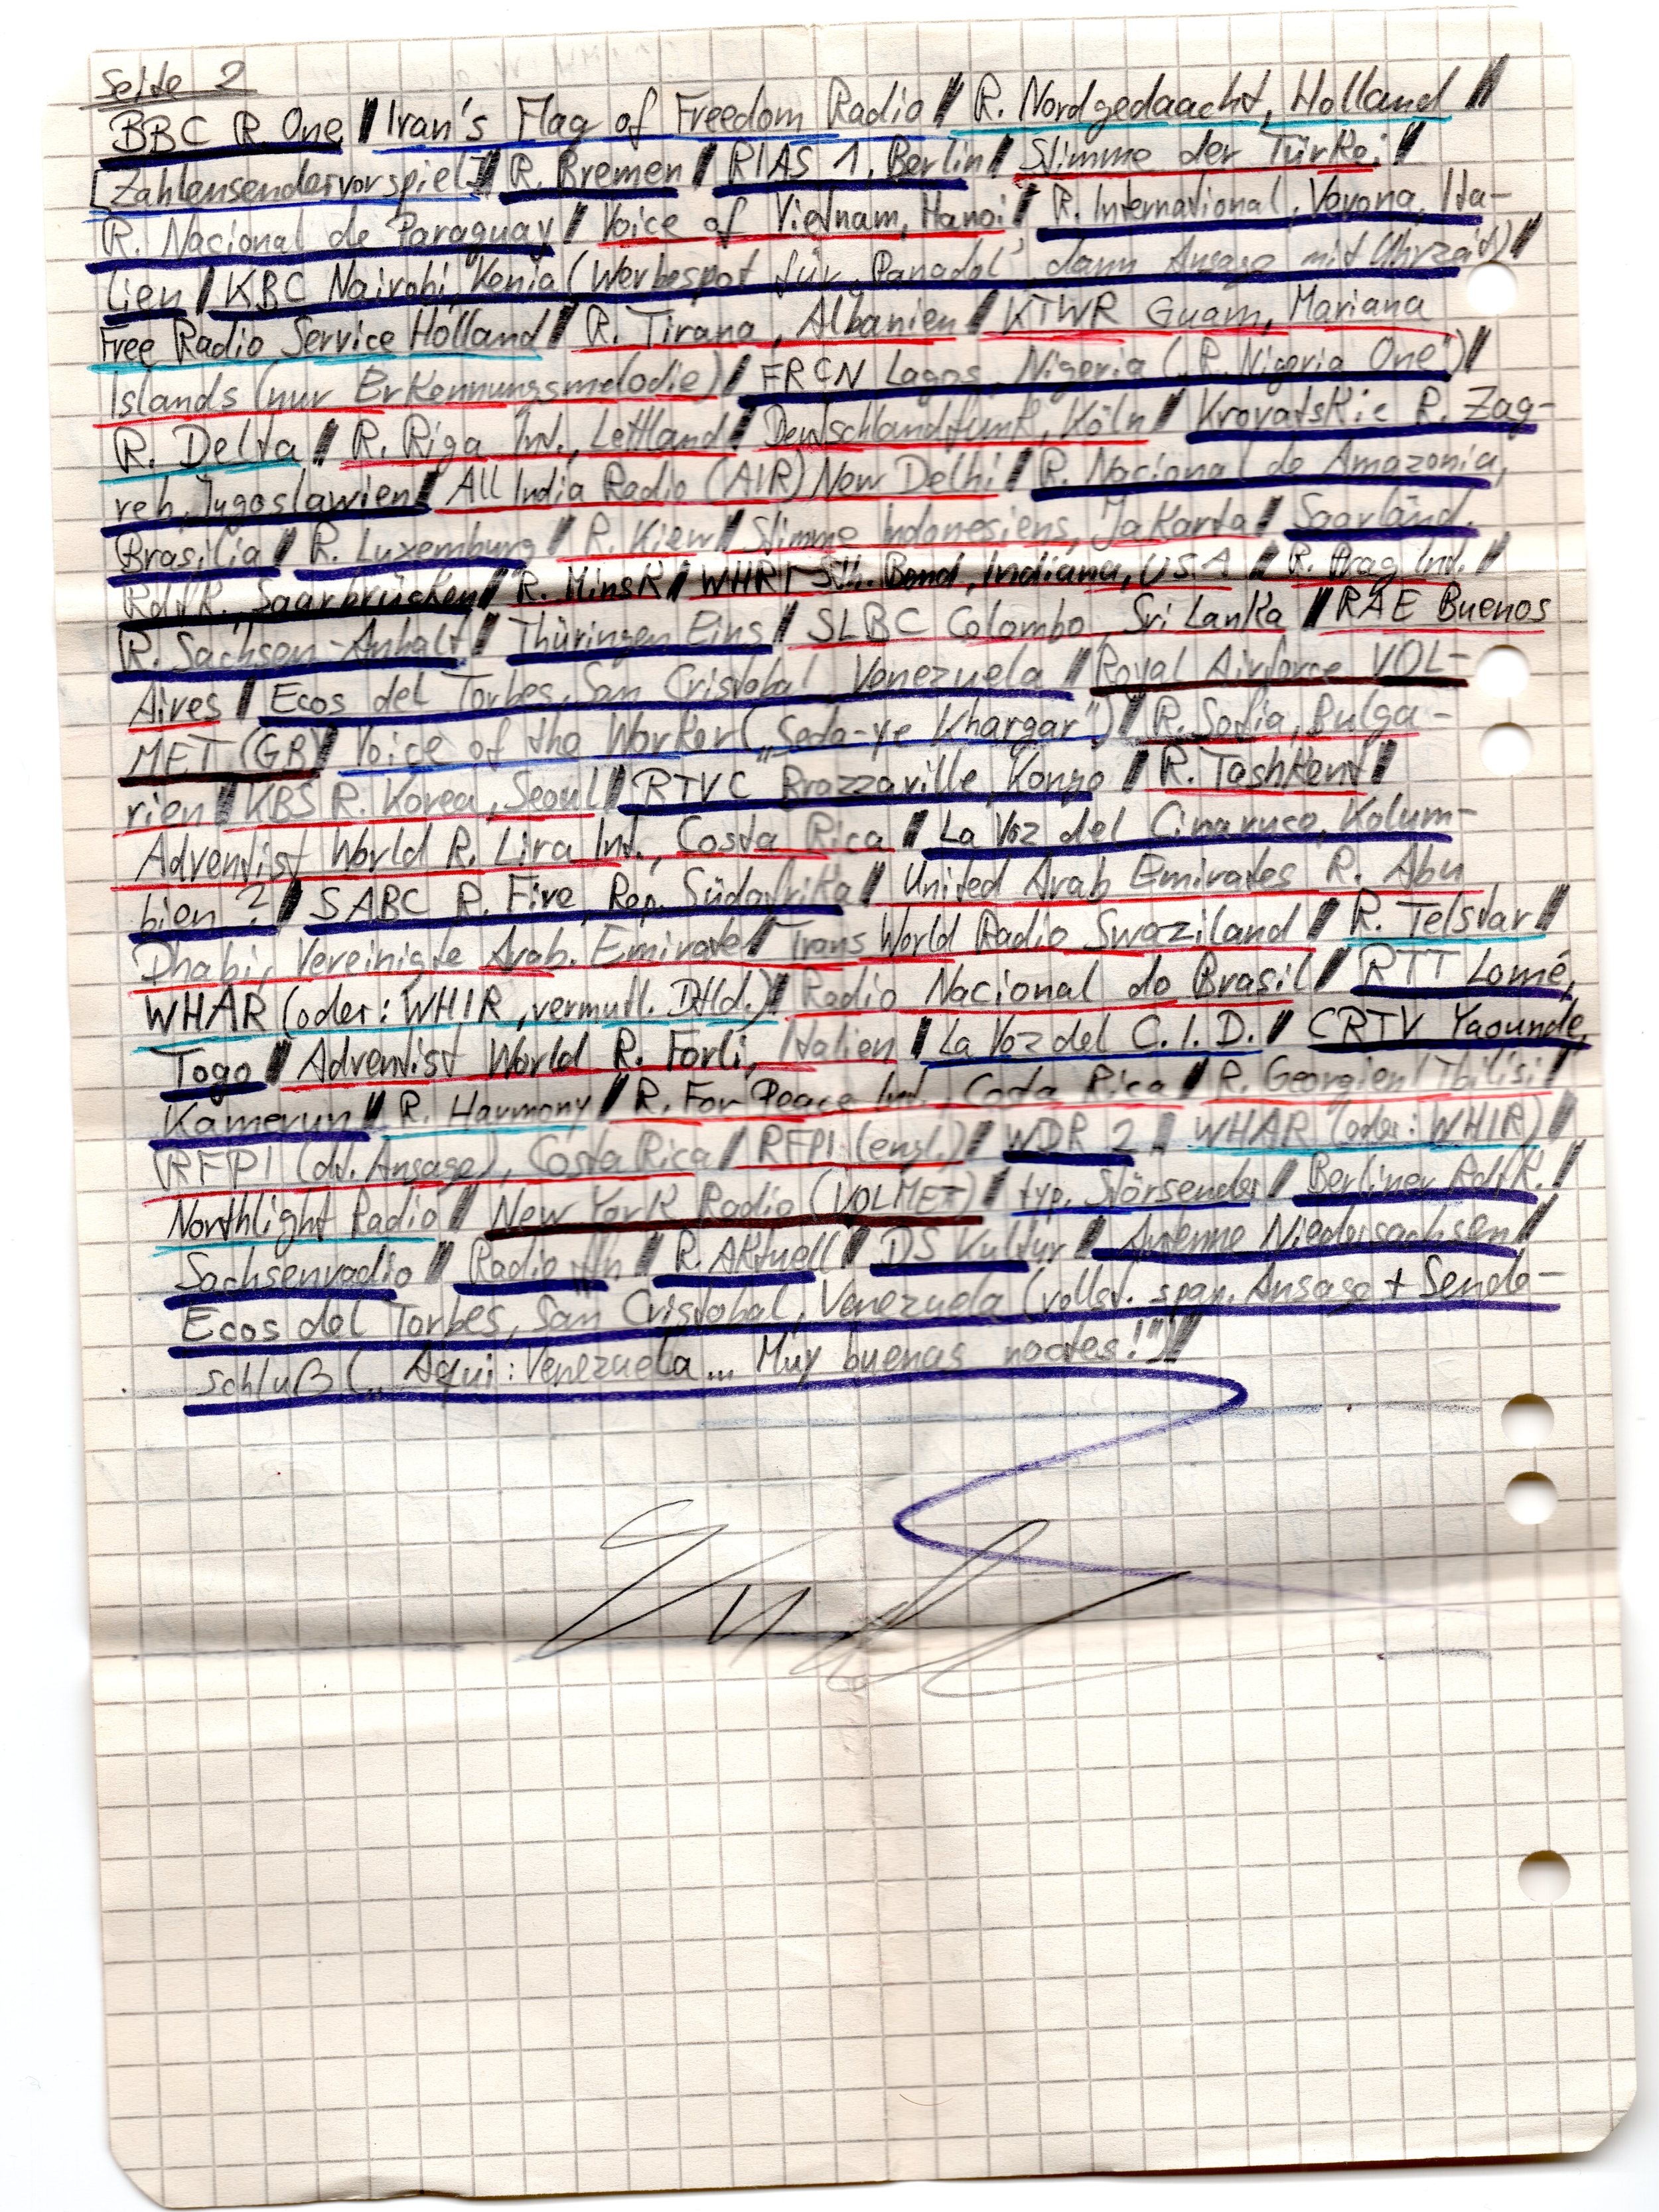 Seite 2
BBC R. One / Iran's Flag of Freedom Radio / R. Nordgedaacht, Holland /
[Zahlensendervorspiel] / R. Bremen / RIAS 1, Berlin / Stimme der Türkei /
R. Nacional de Paraguay / Voice of Vietnam, Hanoi / R. International, Verona, Ita-
lien / KBC Nairobi, Kenia (Werbespot für „Panadol", dann Ansage mit Uhrzeit) /
Free Radio Service Holland / R. Tirana, Albanien / KTWR Guam, Mariana
Islands (nur Erkennungsmelodie) / FRCN Lagos, Nigeria („R. Nigeria One") /
R. Delta / R. Riga Int., Lettland / Deutschlandfunk, Köln / Krovatskie R. Zag-
reb, Jugoslawien / All India Radio (AIR) New Delhi / R. Nacional de Amazonia,
Brasilia / R. Luxemburg / R. Kiew / Stimme Indonesiens, Jakarta / Saarländ.
Rdfk., Saarbrücken / R. Minsk / WHRI Sth. Bend, Indiana, USA / R. Prag Int. /
R. Sachsen-Anhalt / Thüringen Eins / SLBC Colombo, Sri Lanka / RAE Buenos
Aires / Ecos del Torbes, San Cristobal, Venezuela / Royal Airforce VOL-
MET (GB) / Voice of the Worker („Seda-ye Khargar") / R. Sofia, Bulga-
rien / KBS R. Korea, Seoul / RTVC Brazzaville, Kongo / R. Tashkent /
Adventist World R. Lira Int., Costa Rica / La Voz del Cinaruco, Kolum-
bien? / SABC R. Five, Rep. Südafrika / United Arab Emirates R. Abu
Dhabi, Vereinigte Arab. Emirate / Trans World Radio Swaziland / R. Telstar /
WHAR (oder: WHIR, vermutl. Dtld.) / Radio Nacional do Brasil / RTT Lomé,
Togo / Adventist World R. Forli, Italien / La Voz del C.I.D. / CRTV Yaounde,
Kamerun / R. Harmony / R. For Peace Int., Costa Rica / R. Georgien / Tbilisi /
RFPI (dt. Ansage), Costa Rica / RFPI (engl.) / WDR 2 / WHAR (oder: WHIR) /
Northlight Radio / New York Radio (VOLMET) / typ. Störsender / Berliner Rdfk. /
Sachsenradio / Radio ffn / R. Aktuell / DS Kultur / Antenne Niedersachsen /
Ecos del Torbes, San Cristobal, Venezuela (vollst. span. Ansage + Sende-
schluß („Aqui: Venezuela... Muy buenas noctes!") /